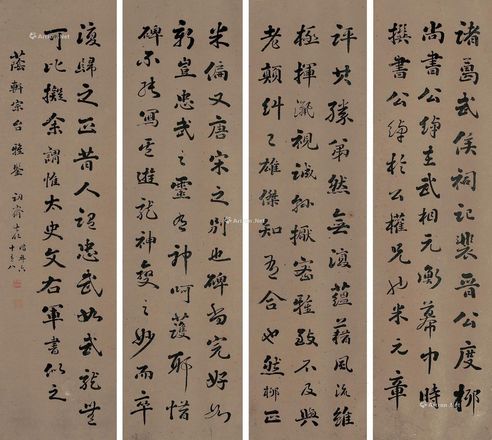 諸葛武侯祠記裴晉公度柳
尚書公綽在武相元衡幕中時
撰書公綽於公權兄也米元章
評其勝弟然無復蘊藉風流維
極揮灑視誠懸撖密雅致不及與
老顛糾糾雄傑知有合也然柳正
米偏又唐宋之別也碑尚完好如
新豈忠武之靈有神呵護耶惜
碑不能寫其遊龍神變之妙而卒
復歸之正昔人謂忠武如武龍無
可比擬余謂惟太史文右軍書似之
蔭軒宗台雅鑒 訒齋